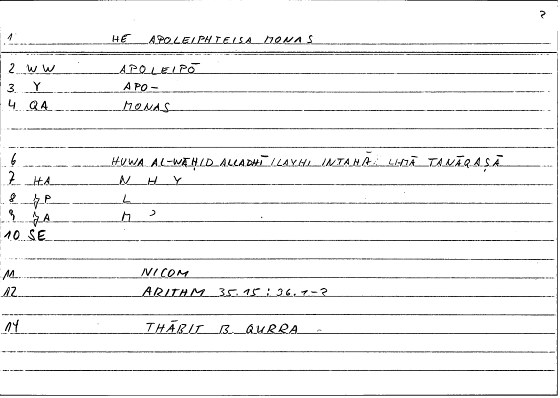 ?
1 HĒ APOLEIPHTEISA MONAS
2 WW APOLEIPŌ
3 Y APO-
4 QA MONAS
6 HUWA AL-WĀHID ALLADHĪ ILAYHI INTAHĀ: LIMĀ TANĀQAṢĀ
7 HA N H Y
8 P L
9 A M ʾ
10 SE
11 NICOM
12 ARITHM 35.15 : 36.1-2
14 THĀBIT B. QURRA